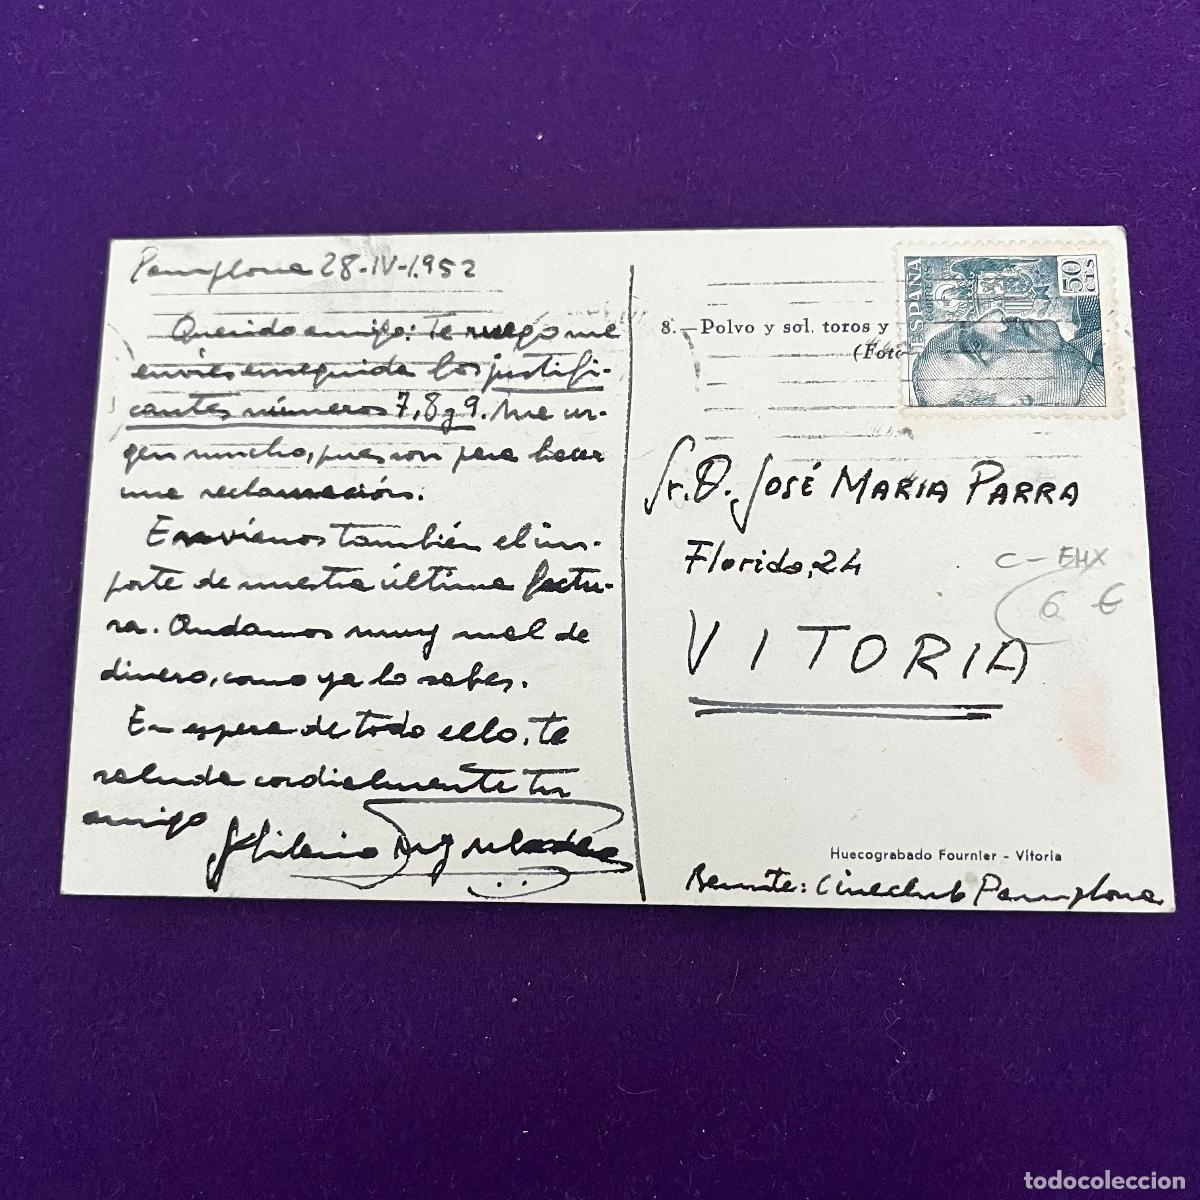 Pamplona 28-IV-1.952
Querido amigo: Te ruego me
envíes enseguida los justifi-
cantes números 7, 8 y 9. Me ur-
gen mucho, pues son para hacer
una reclamación.
Envíenos también el im-
porte de nuestra última factu-
ra. Andamos muy mal de
dinero, como ya lo sabes.
En espera de todo ello, te
saluda cordialmente tu
amigo
8.—Polvo y sol, toros y
(Foto
ESPAÑA
CORREOS
50
CTS
Sr. D. JOSÉ MARIA PARRA
Florida, 24
VITORIA
C - EHX
6 €
Huecograbado Fournier - Vitoria
Remite: Cineclub Pamplona
todocoleccion